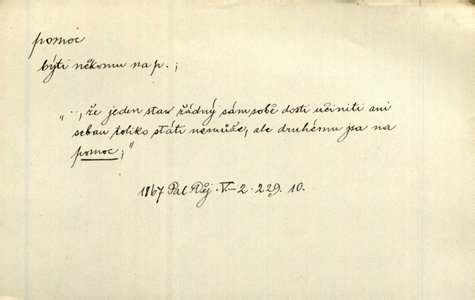 pomoc
býti někomu na p.;
"..., že jeden stav řádný sám sobě dosti učiniti ani
sebau toliko státi nemůže, ale druhému jsa na
pomoc;"
1867 Pal. Děj. V-2. 229. 10.